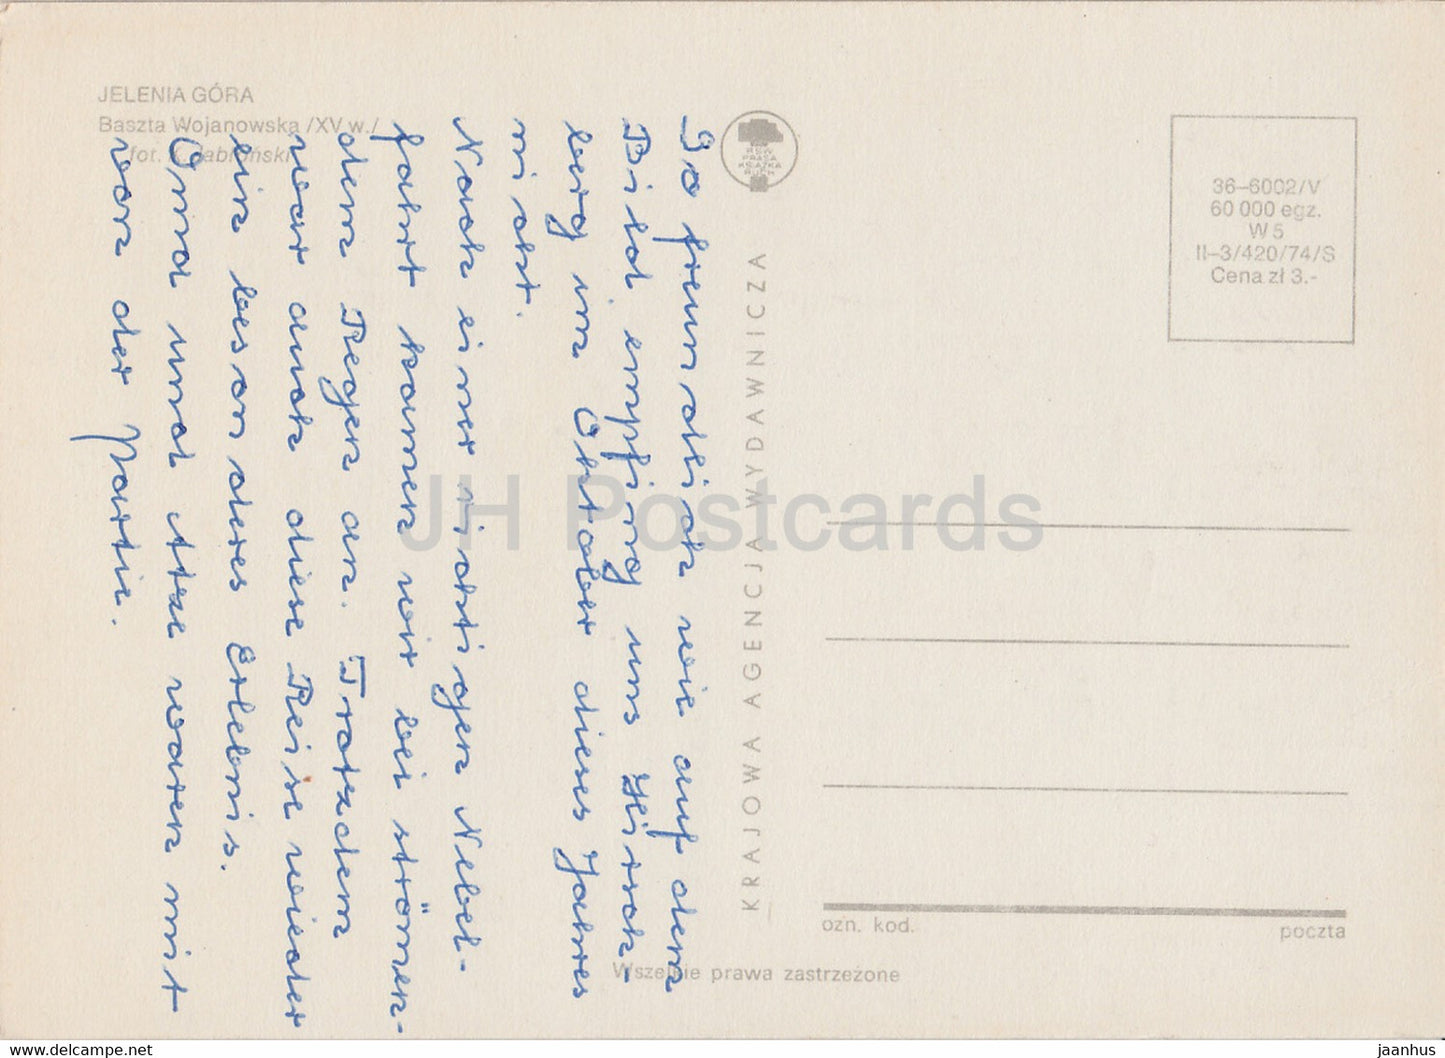 JELENIA GÓRA
Baszta Wojanowska /XV w./
fot. K. Jabłoński
So freundlich wie auf dem
Bild empfing uns Hirsch-
berg im Oktober dieses Jahres
nicht.
Nach einer richtigen Nebel-
fahrt kamen wir bei strömen-
dem Regen an. Trotzdem
war auch diese Reise wieder
ein besonderes Erlebnis.
Oma und Utze waren mit
von der Partie.
RSW
PRASA
KSIĄŻKA
RUCH
KRAJOWA AGENCJA WYDAWNICZA
36-6002/V
60 000 egz.
W 5
II-3/420/74/S
Cena zł 3.-
ozn. kod.
poczta
Wszelkie prawa zastrzeżone
JH Postcards
www.delcampe.net
jaanhus